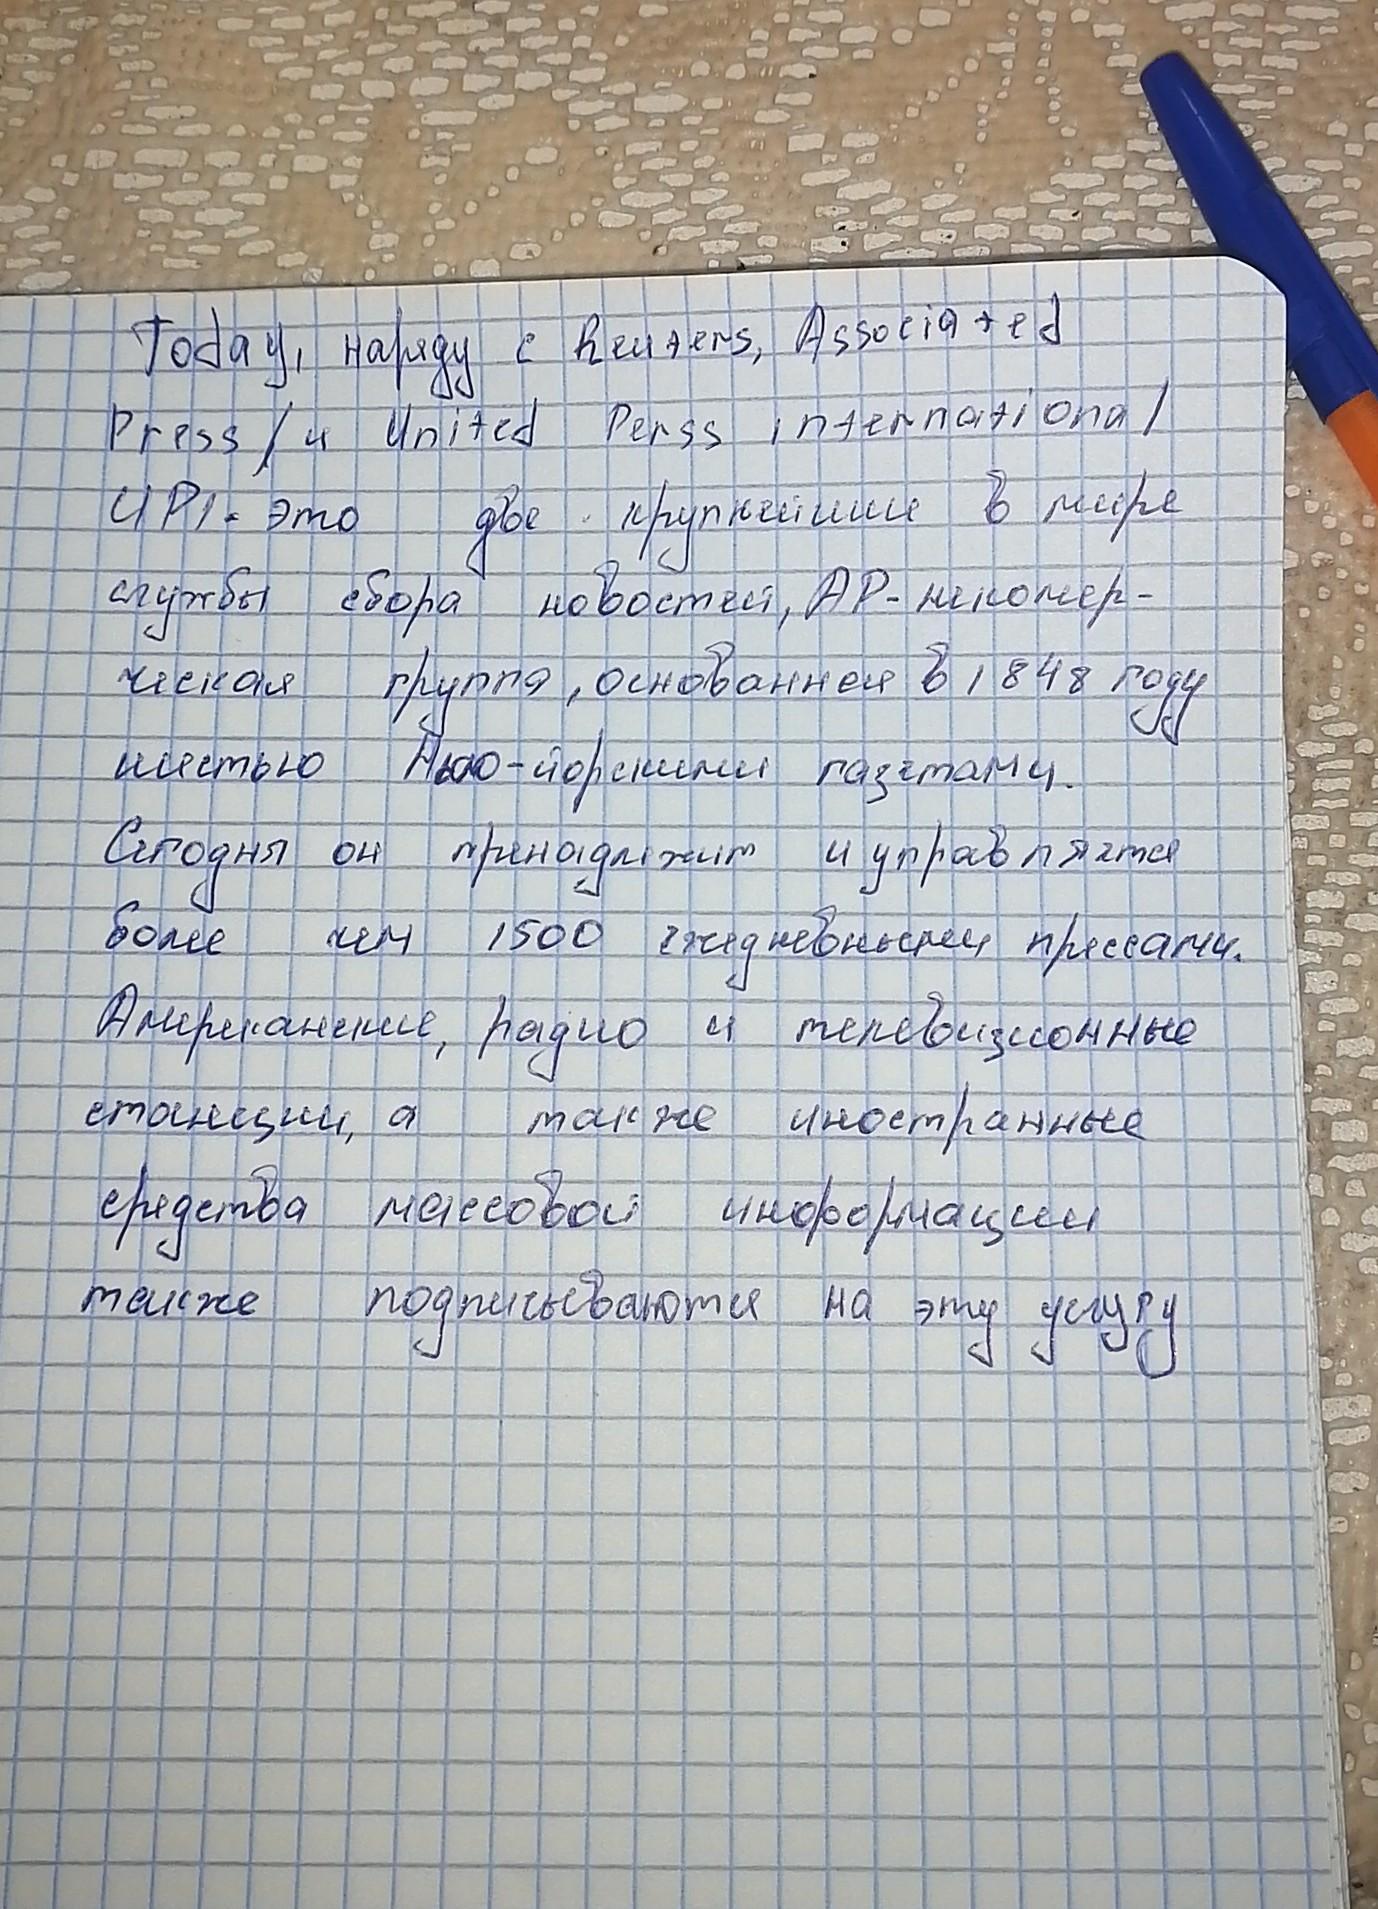 Today, наряду с Reuters, Associated
Press / и United Perss international
UPI - это две крупнейшие в мире
службы сбора новостей, AP - некомер-
ческая группа, основанная в 1848 году
шестью Нью-йоркскими газетами.
Сегодня он принадлежит и управляется
более чем 1500 ежедневными прессами.
Американские, радио и телевизионные
станции, а также иностранные
средства массовой информации
также подписываются на эту услугу